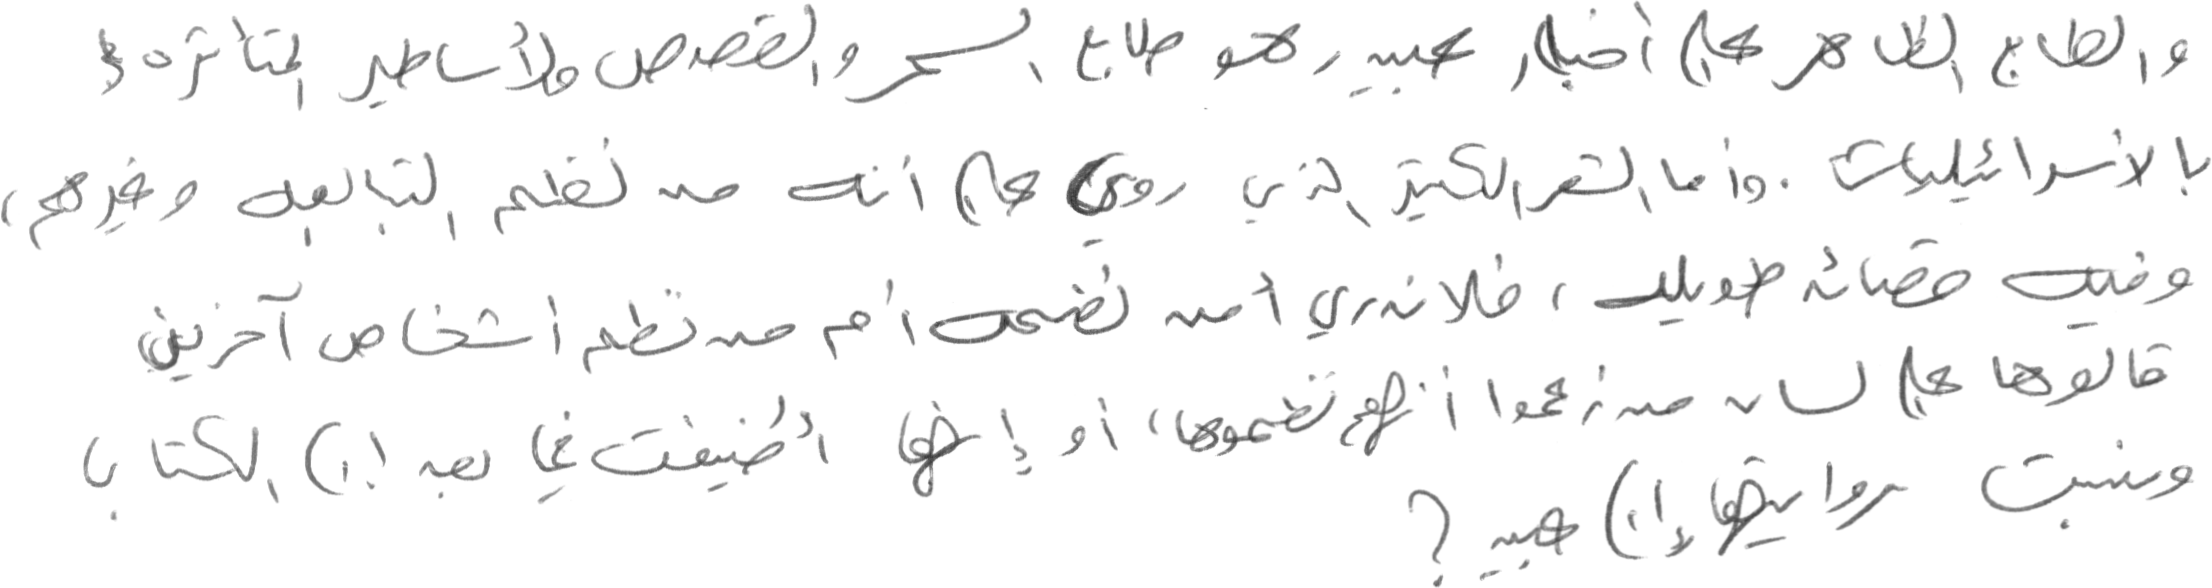 والطابع الظاهر على أخبار عبيد، هو طابع السمر والقصص والأساطير المتأثرة
بالإسرائيليات. وأما الشعر الكثير الذي روي على أنه من نظم التبابعة وغيرهم،
وفيه قصائد طويلة، فلا ندري أمن نظمه أم من نظم أشخاص آخرين
قالوها على لسان من زعموا أنهم نظموها، أو إنها أضيفت فيما بعد إلى الكتاب
ونسبت روايتها إلى عبيد؟